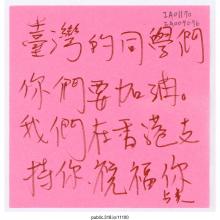 IA01170
臺灣的同學們
你們要加油。
我們在香港支
持你,祝福你
public.318.io/11180